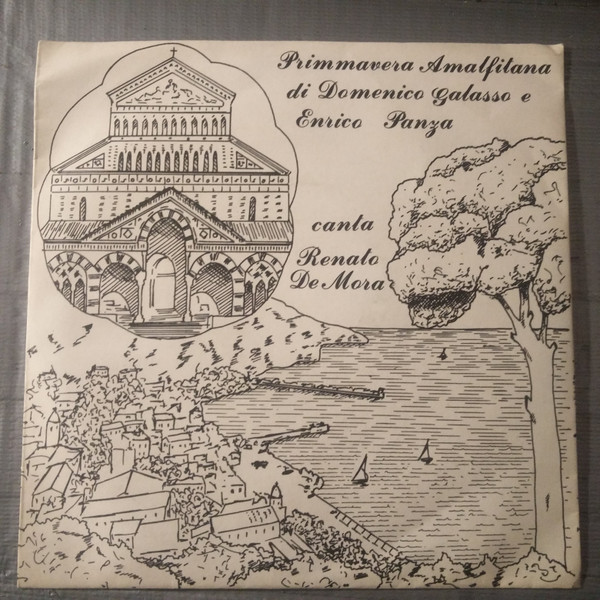 Primmavera Amalfitana
di Domenico Galasso e
Enrico Panza
canta
Renato
De Mora